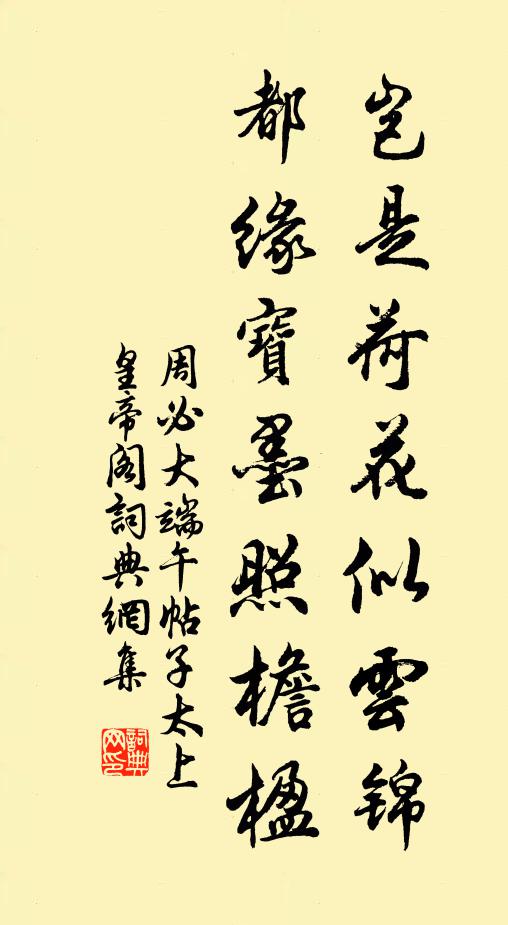 豈是荷花似雲錦
都緣寶墨照檐楹
周必大端午帖子太上
皇帝閣詞典網集
詞典
网印